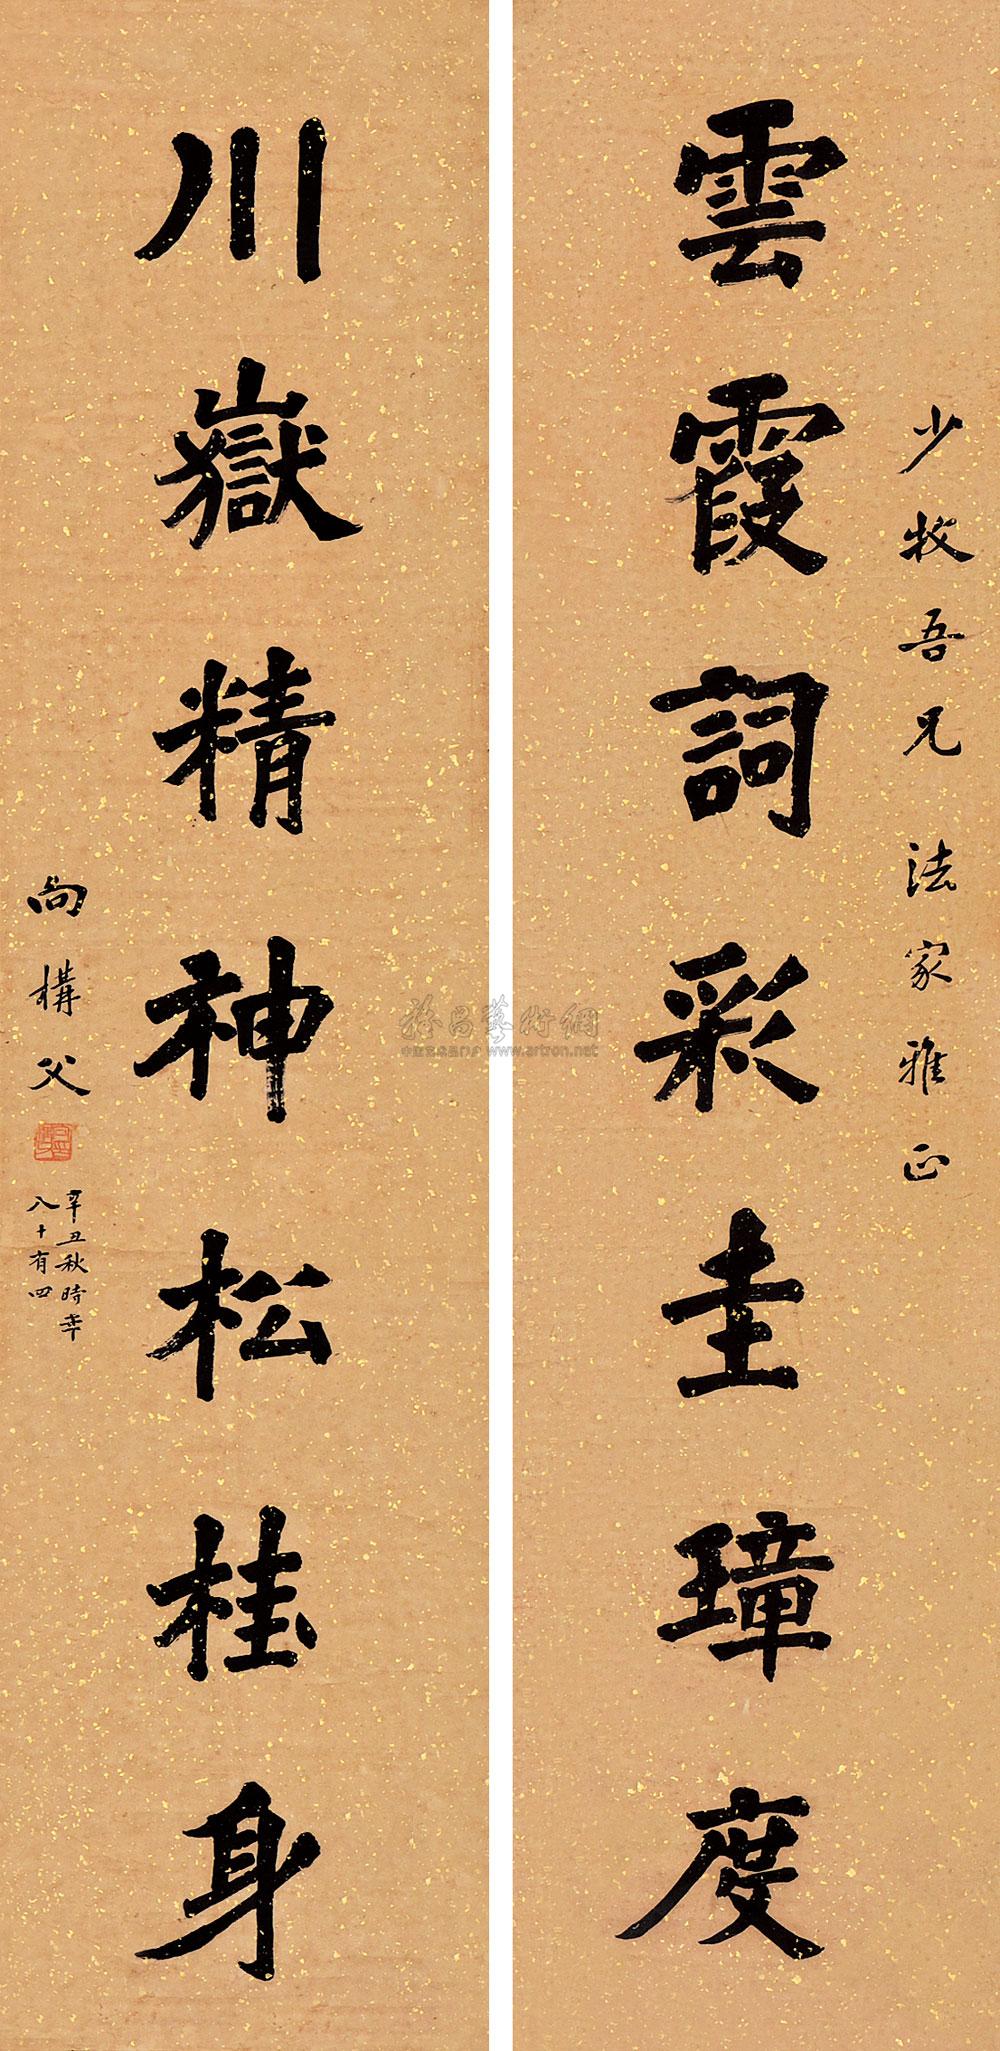 少牧吾兄法家雅正
雲霞詞彩圭璋度
川嶽精神松桂身
向構父
辛丑秋時年
八十有四
雅昌藝術網
www.artron.net